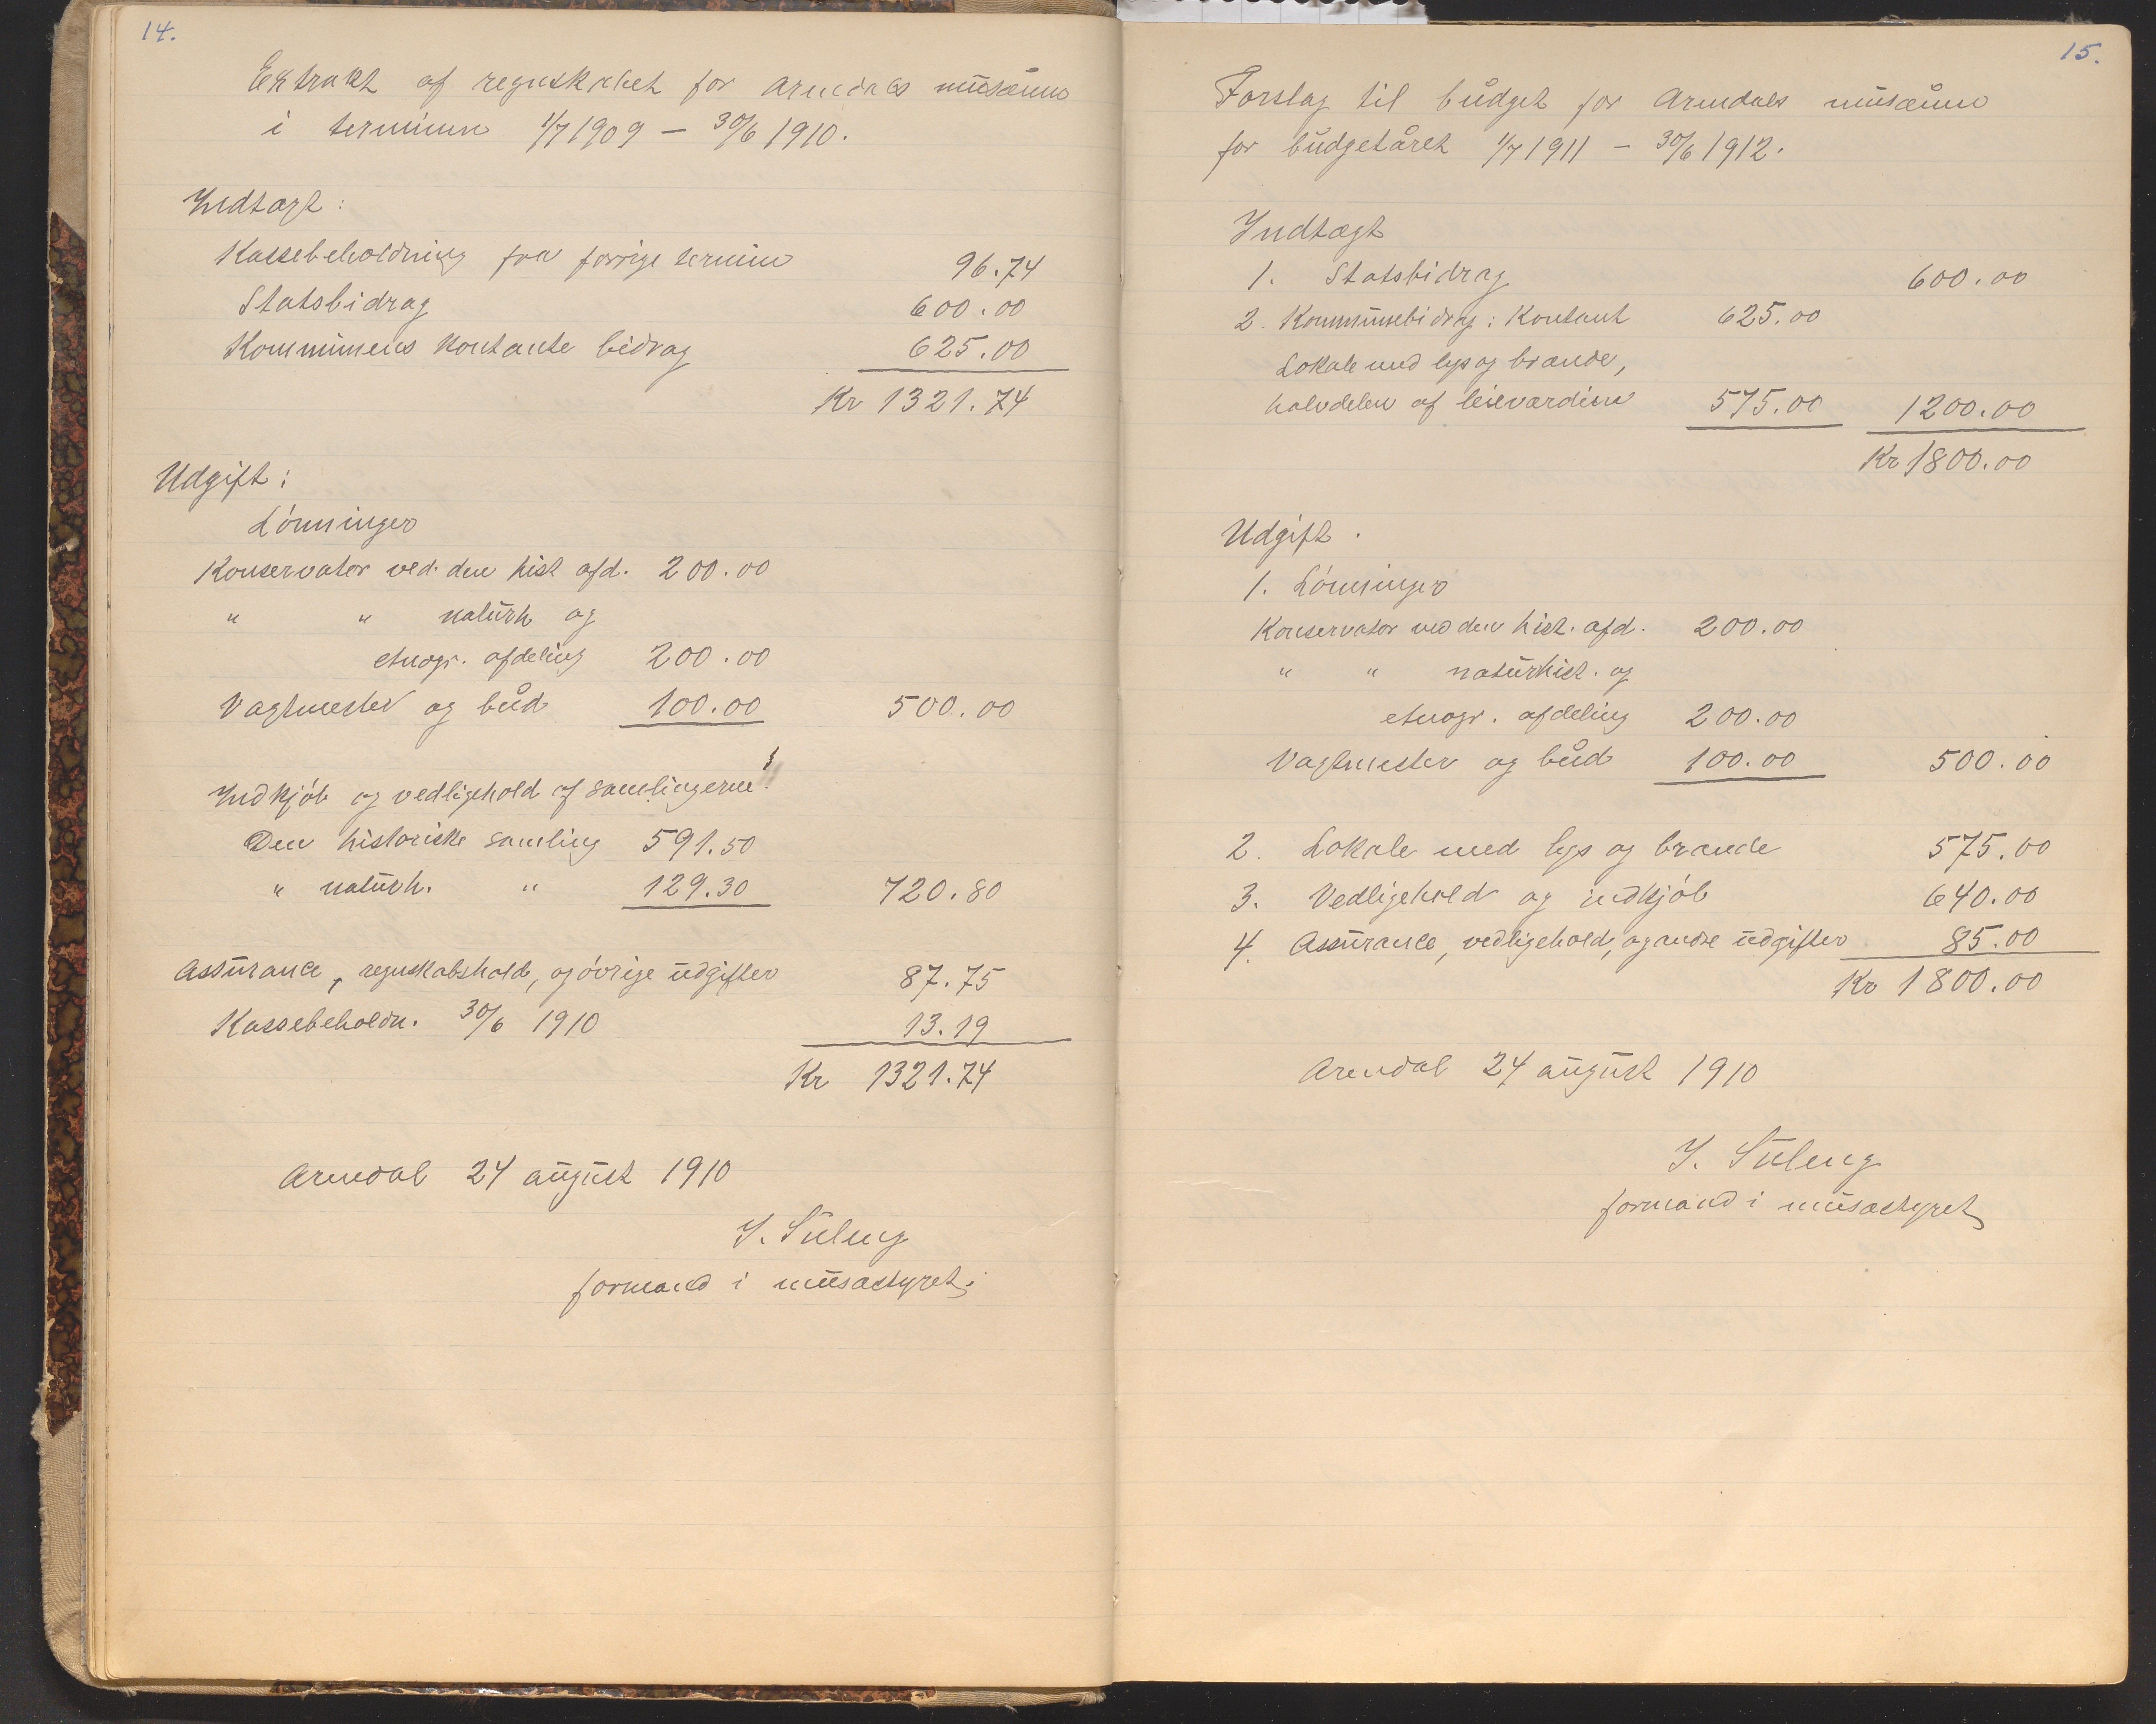 14.
Extrakt af regnskabet for Arendals musæum
i terminen 1/7 1909 – 30/6 1910.
Indtægt:
Kassebeholdning fra forrige termin 96.74
Statsbidrag 600.00
Kommunens kontante bidrag 625.00
Kr 1321.74
Udgift:
Lønninger
Konservator ved den hist afd. 200.00
" " naturh og
etnogr. afdeling 200.00
Vagtmester og bud 100.00 500.00
Indkjøb og vedligehold af samlingerne:
Den historiske samling 591.50
" naturh. " 129.30 720.80
Assurance, regnskabshold, og øvrige udgifter 87.75
Kassebeholdn. 30/6 1910 13.19
Kr 1321.74
Arendal 24 august 1910
J. Suleng
formand i musæstyret.
15.
Forslag til budget for Arendals musæum
for budgetåret 1/7 1911 – 30/6 1912.
Indtægt
1. Statsbidrag 600.00
2. Kommunebidrag: Kontant 625.00
Lokale med lys og brænde,
halvdelen af leieværdien 575.00 1200.00
Kr 1800.00
Udgift.
1. Lønninger
Konservator ved den hist. afd. 200.00
" " naturhist. og
etnogr. afdeling 200.00
Vagtmester og bud 100.00 500.00
2. Lokale med lys og brænde 575.00
3. Vedligehold og indkjøb 640.00
4. Assurance, vedligehold, og andre udgifter 85.00
Kr 1800.00
Arendal 24 august 1910
J. Suleng
formand i musæstyret